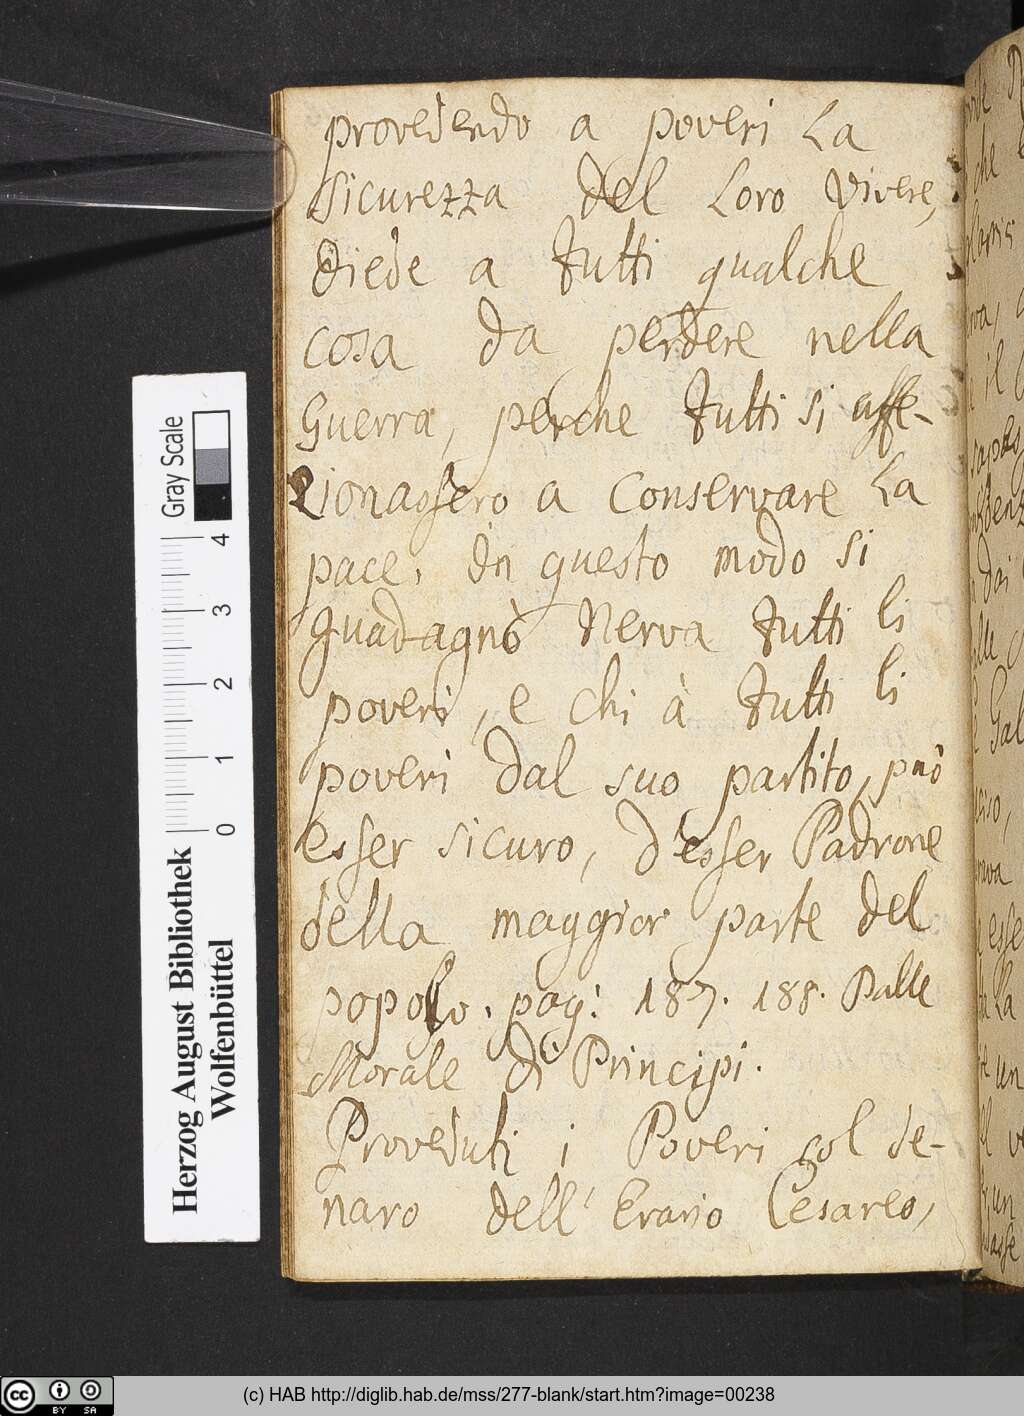 provedendo a poveri La
Sicurezza del Loro vivere,
diede a tutti qualche
cosa da perdere nella
Guerra, perche tutti si affe-
zionassero a conservare La
pace. in questo modo si
guadagnò Nerva tutti li
poveri, e chi à tutti li
poveri dal suo partito, può
esser sicuro, d'esser Padrone
della maggior parte del
popolo. pag: 187. 188. Dalle
Morale di Principi.
Proveduti i Poveri col de-
naro dell' Erario Cesareo,
Gray Scale
4
3
2
1
0
Herzog August Bibliothek
Wolfenbüttel
cc BY SA
(c) HAB http://diglib.hab.de/mss/277-blank/start.htm?image=00238